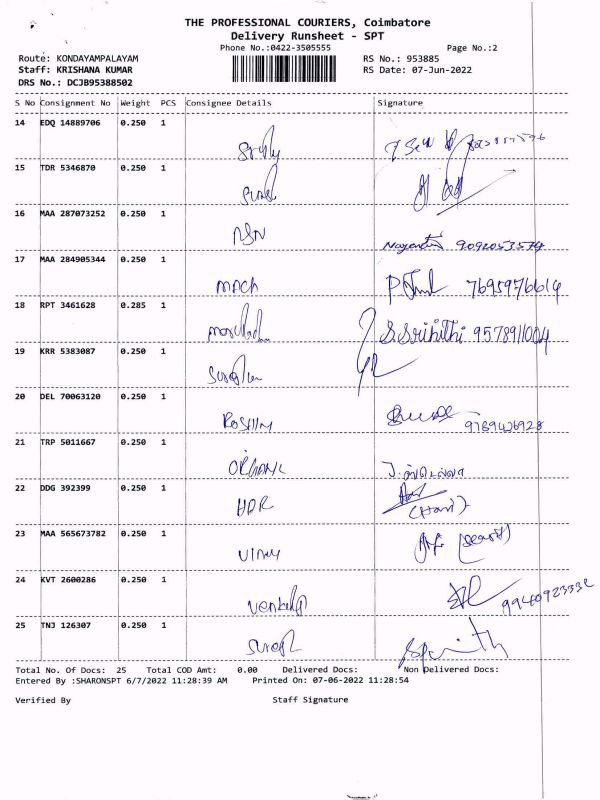 THE PROFESSIONAL COURIERS, Coimbatore
Delivery Runsheet - SPT
Phone No.:0422-3505555 Page No.:2
Route: KONDAYAMPALAYAM RS No.: 953885
Staff: KRISHANA KUMAR RS Date: 07-Jun-2022
DRS No.: DCJB95388502
S No Consignment No Weight PCS Consignee Details Signature
14 EDQ 14889706 0.250 1
15 TDR 5346870 0.250 1
16 MAA 287073252 0.250 1
NSN 9092053574
17 MAA 284905344 0.250 1
MACH 7695976614
18 RPT 3461628 0.285 1
S.Srihithi 9578911004
19 KRR 5383087 0.250 1
20 DEL 70063120 0.250 1
ROSHIM 9789426928
21 TRP 5011667 0.250 1
ORGANIC
22 DDG 392399 0.250 1
HDR (Hari)
23 MAA 565673782 0.250 1
24 KVT 2600286 0.250 1
25 TNJ 126307 0.250 1
Total No. Of Docs: 25 Total COD Amt: 0.00 Delivered Docs: Non Delivered Docs:
Entered By :SHARONSPT 6/7/2022 11:28:39 AM Printed On: 07-06-2022 11:28:54
Verified By Staff Signature